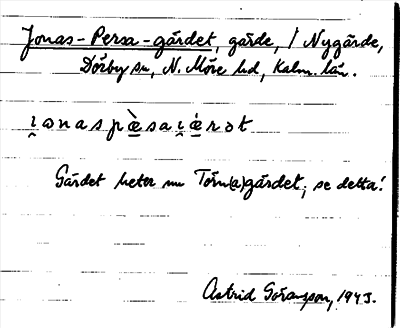 Jonas-Persa-gärdet, gärde, i Nygärde,
Dörby sn, N. Möre hd, Kalm. län.
i̯ɔnaspæ̀sai̯ǽrɔt
Gärdet heter nu Törn(a)gärdet; se detta!
Astrid Göransson, 1943.